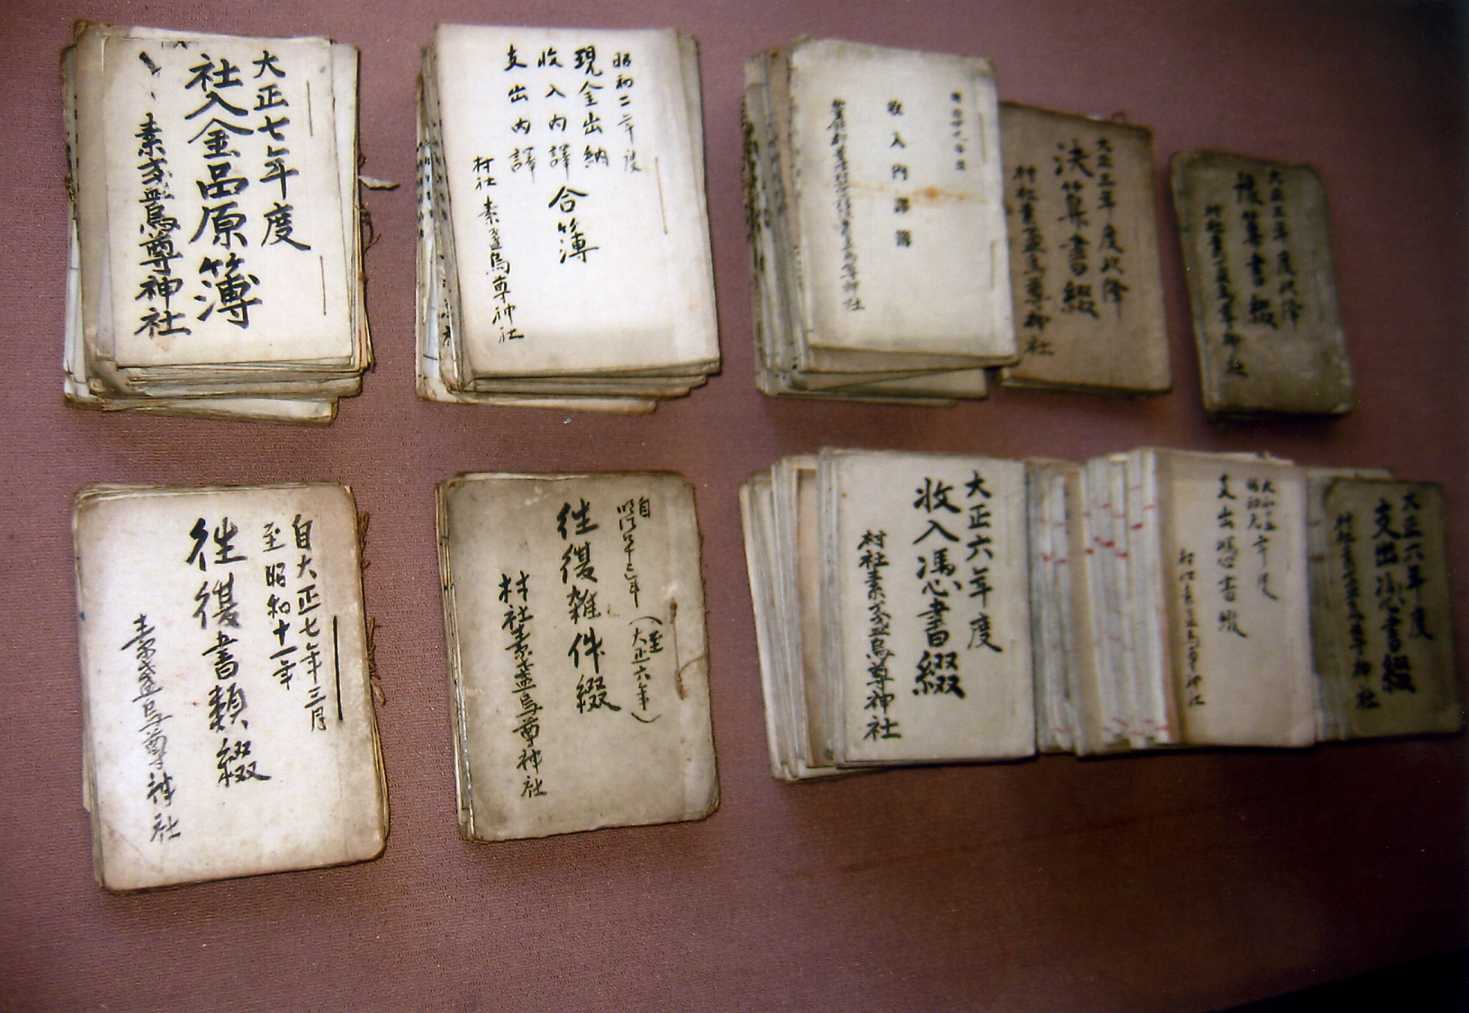 大正七年度
社入金品原簿
素戔嗚尊神社
昭和二年度
現金出納
收入内譯
支出内譯
合簿
村社 素盞嗚尊神社
收入内譯簿
大正三年度以降
決算書綴
村社素盞嗚尊神社
大正三年度以降
算書綴
村社素盞嗚尊神社
自大正七年三月
至昭和十一年
徃復書類綴
素盞嗚尊神社
自明治
(至大正六年)
徃復雑件綴
村社素盞嗚尊神社
大正六年度
收入憑書綴
村社素戔嗚尊神社
支出憑書綴
村社素盞嗚尊神社
大正六年度
支出憑書綴
村社素盞嗚尊神社